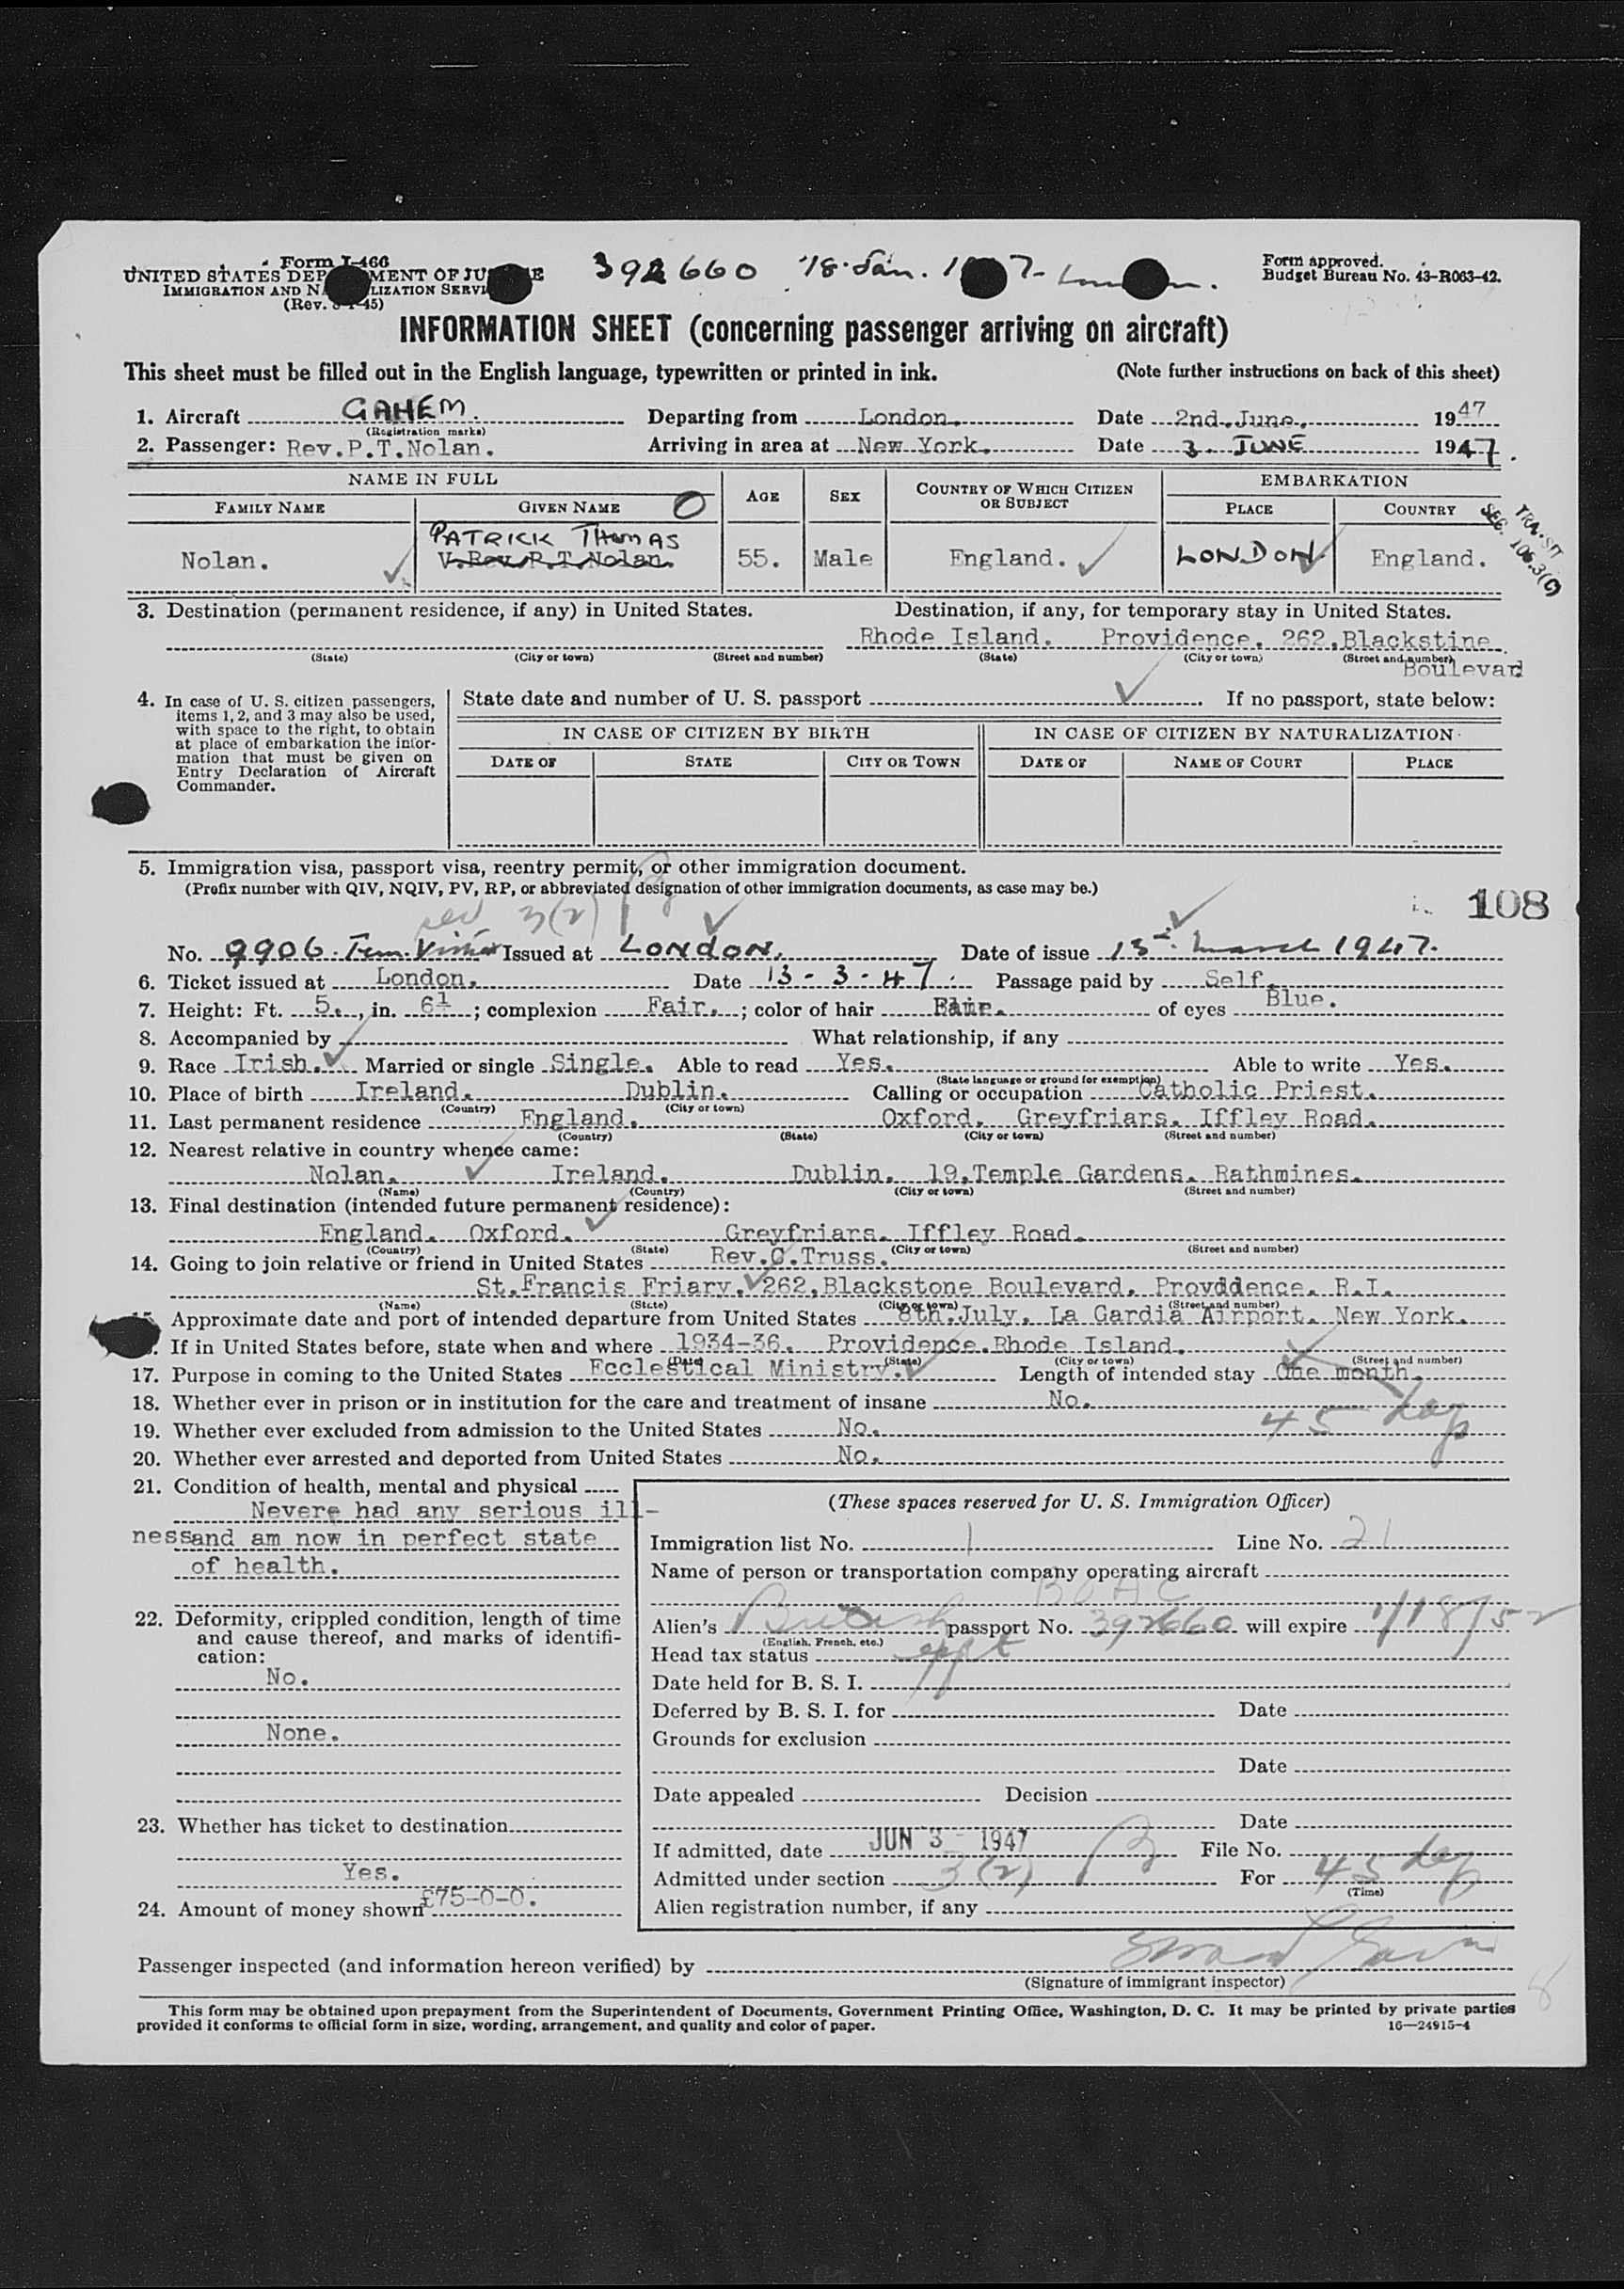 Form I-466
UNITED STATES DEP MENT OF JU E
IMMIGRATION AND N LIZATION SERVI
(Rev. -45)
392660 18. Jan. 1 7-
Form approved.
Budget Bureau No. 43-R063-42.
INFORMATION SHEET (concerning passenger arriving on aircraft)
This sheet must be filled out in the English language, typewritten or printed in ink. (Note further instructions on back of this sheet)
1. Aircraft GAHEM. Departing from London. Date 2nd.June. 1947
(Registration marks)
2. Passenger: Rev.P.T.Nolan. Arriving in area at New York. Date 3. JUNE 1947.
NAME IN FULL AGE SEX COUNTRY OF WHICH CITIZEN OR SUBJECT EMBARKATION
FAMILY NAME GIVEN NAME PLACE COUNTRY
TRANSIT
SEC. 106.3(C)
PATRICK THOMAS
Nolan. V.Rev.P.T.Nolan. 55. Male England. LONDON. England.
3. Destination (permanent residence, if any) in United States. Destination, if any, for temporary stay in United States.
Rhode Island. Providence. 262.Blackstine
(State) (City or town) (Street and number) (State) (City or town) (Street and number)
Boulevard
4. In case of U. S. citizen passengers, items 1, 2, and 3 may also be used, with space to the right, to obtain at place of embarkation the information that must be given on Entry Declaration of Aircraft Commander.
State date and number of U. S. passport If no passport, state below:
IN CASE OF CITIZEN BY BIRTH IN CASE OF CITIZEN BY NATURALIZATION
DATE OF STATE CITY OR TOWN DATE OF NAME OF COURT PLACE
5. Immigration visa, passport visa, reentry permit, or other immigration document.
(Prefix number with QIV, NQIV, PV, RP, or abbreviated designation of other immigration documents, as case may be.)
108
3(2)
No. 9906. Tem. Visitor Issued at LONDON. Date of issue 13th. March 1947.
6. Ticket issued at London. Date 13-3-47. Passage paid by Self.
7. Height: Ft. 5., in. 6½ ; complexion Fair. ; color of hair Fair. of eyes Blue.
8. Accompanied by What relationship, if any
9. Race Irish. Married or single Single. Able to read Yes. Able to write Yes.
(State language or ground for exemption)
10. Place of birth Ireland. Dublin. Calling or occupation Catholic Priest.
(Country) (City or town)
11. Last permanent residence England. Oxford. Greyfriars. Iffley Road.
(Country) (State) (City or town) (Street and number)
12. Nearest relative in country whence came:
Nolan. Ireland. Dublin. 19.Temple Gardens. Rathmines.
(Name) (Country) (City or town) (Street and number)
13. Final destination (intended future permanent residence):
England. Oxford. Greyfriars. Iffley Road.
(Country) (State) (City or town) (Street and number)
14. Going to join relative or friend in United States Rev.C.Truss.
St.Francis Friary. 262.Blackstone Boulevard. Provddence. R.I.
(Name) (State) (City or town) (Street and number)
Approximate date and port of intended departure from United States 8th.July. La Gardia Airport. New York.
If in United States before, state when and where 1934-36. Providence.Rhode Island.
(Date) (State) (City or town) (Street and number)
17. Purpose in coming to the United States Ecclestical Ministry. Length of intended stay One month.
18. Whether ever in prison or in institution for the care and treatment of insane No.
45 days
19. Whether ever excluded from admission to the United States No.
20. Whether ever arrested and deported from United States No.
21. Condition of health, mental and physical
Nevere had any serious ill-
nessand am now in perfect state
of health.
22. Deformity, crippled condition, length of time and cause thereof, and marks of identification:
No.
None.
23. Whether has ticket to destination
Yes.
24. Amount of money shown £75-0-0.
(These spaces reserved for U. S. Immigration Officer)
Immigration list No. 1 Line No. 21
Name of person or transportation company operating aircraft
B O A C
Alien's British passport No. 392660 will expire 1/18/52
(English, French, etc.)
Head tax status
Date held for B. S. I.
Deferred by B. S. I. for Date
Grounds for exclusion
Date
Date appealed Decision
Date
If admitted, date JUN 3 - 1947 File No.
Admitted under section 3(2) For 45 days
(Time)
Alien registration number, if any
Passenger inspected (and information hereon verified) by
(Signature of immigrant inspector)
8
This form may be obtained upon prepayment from the Superintendent of Documents, Government Printing Office, Washington, D. C. It may be printed by private parties
provided it conforms to official form in size, wording, arrangement, and quality and color of paper. 16—24915-4